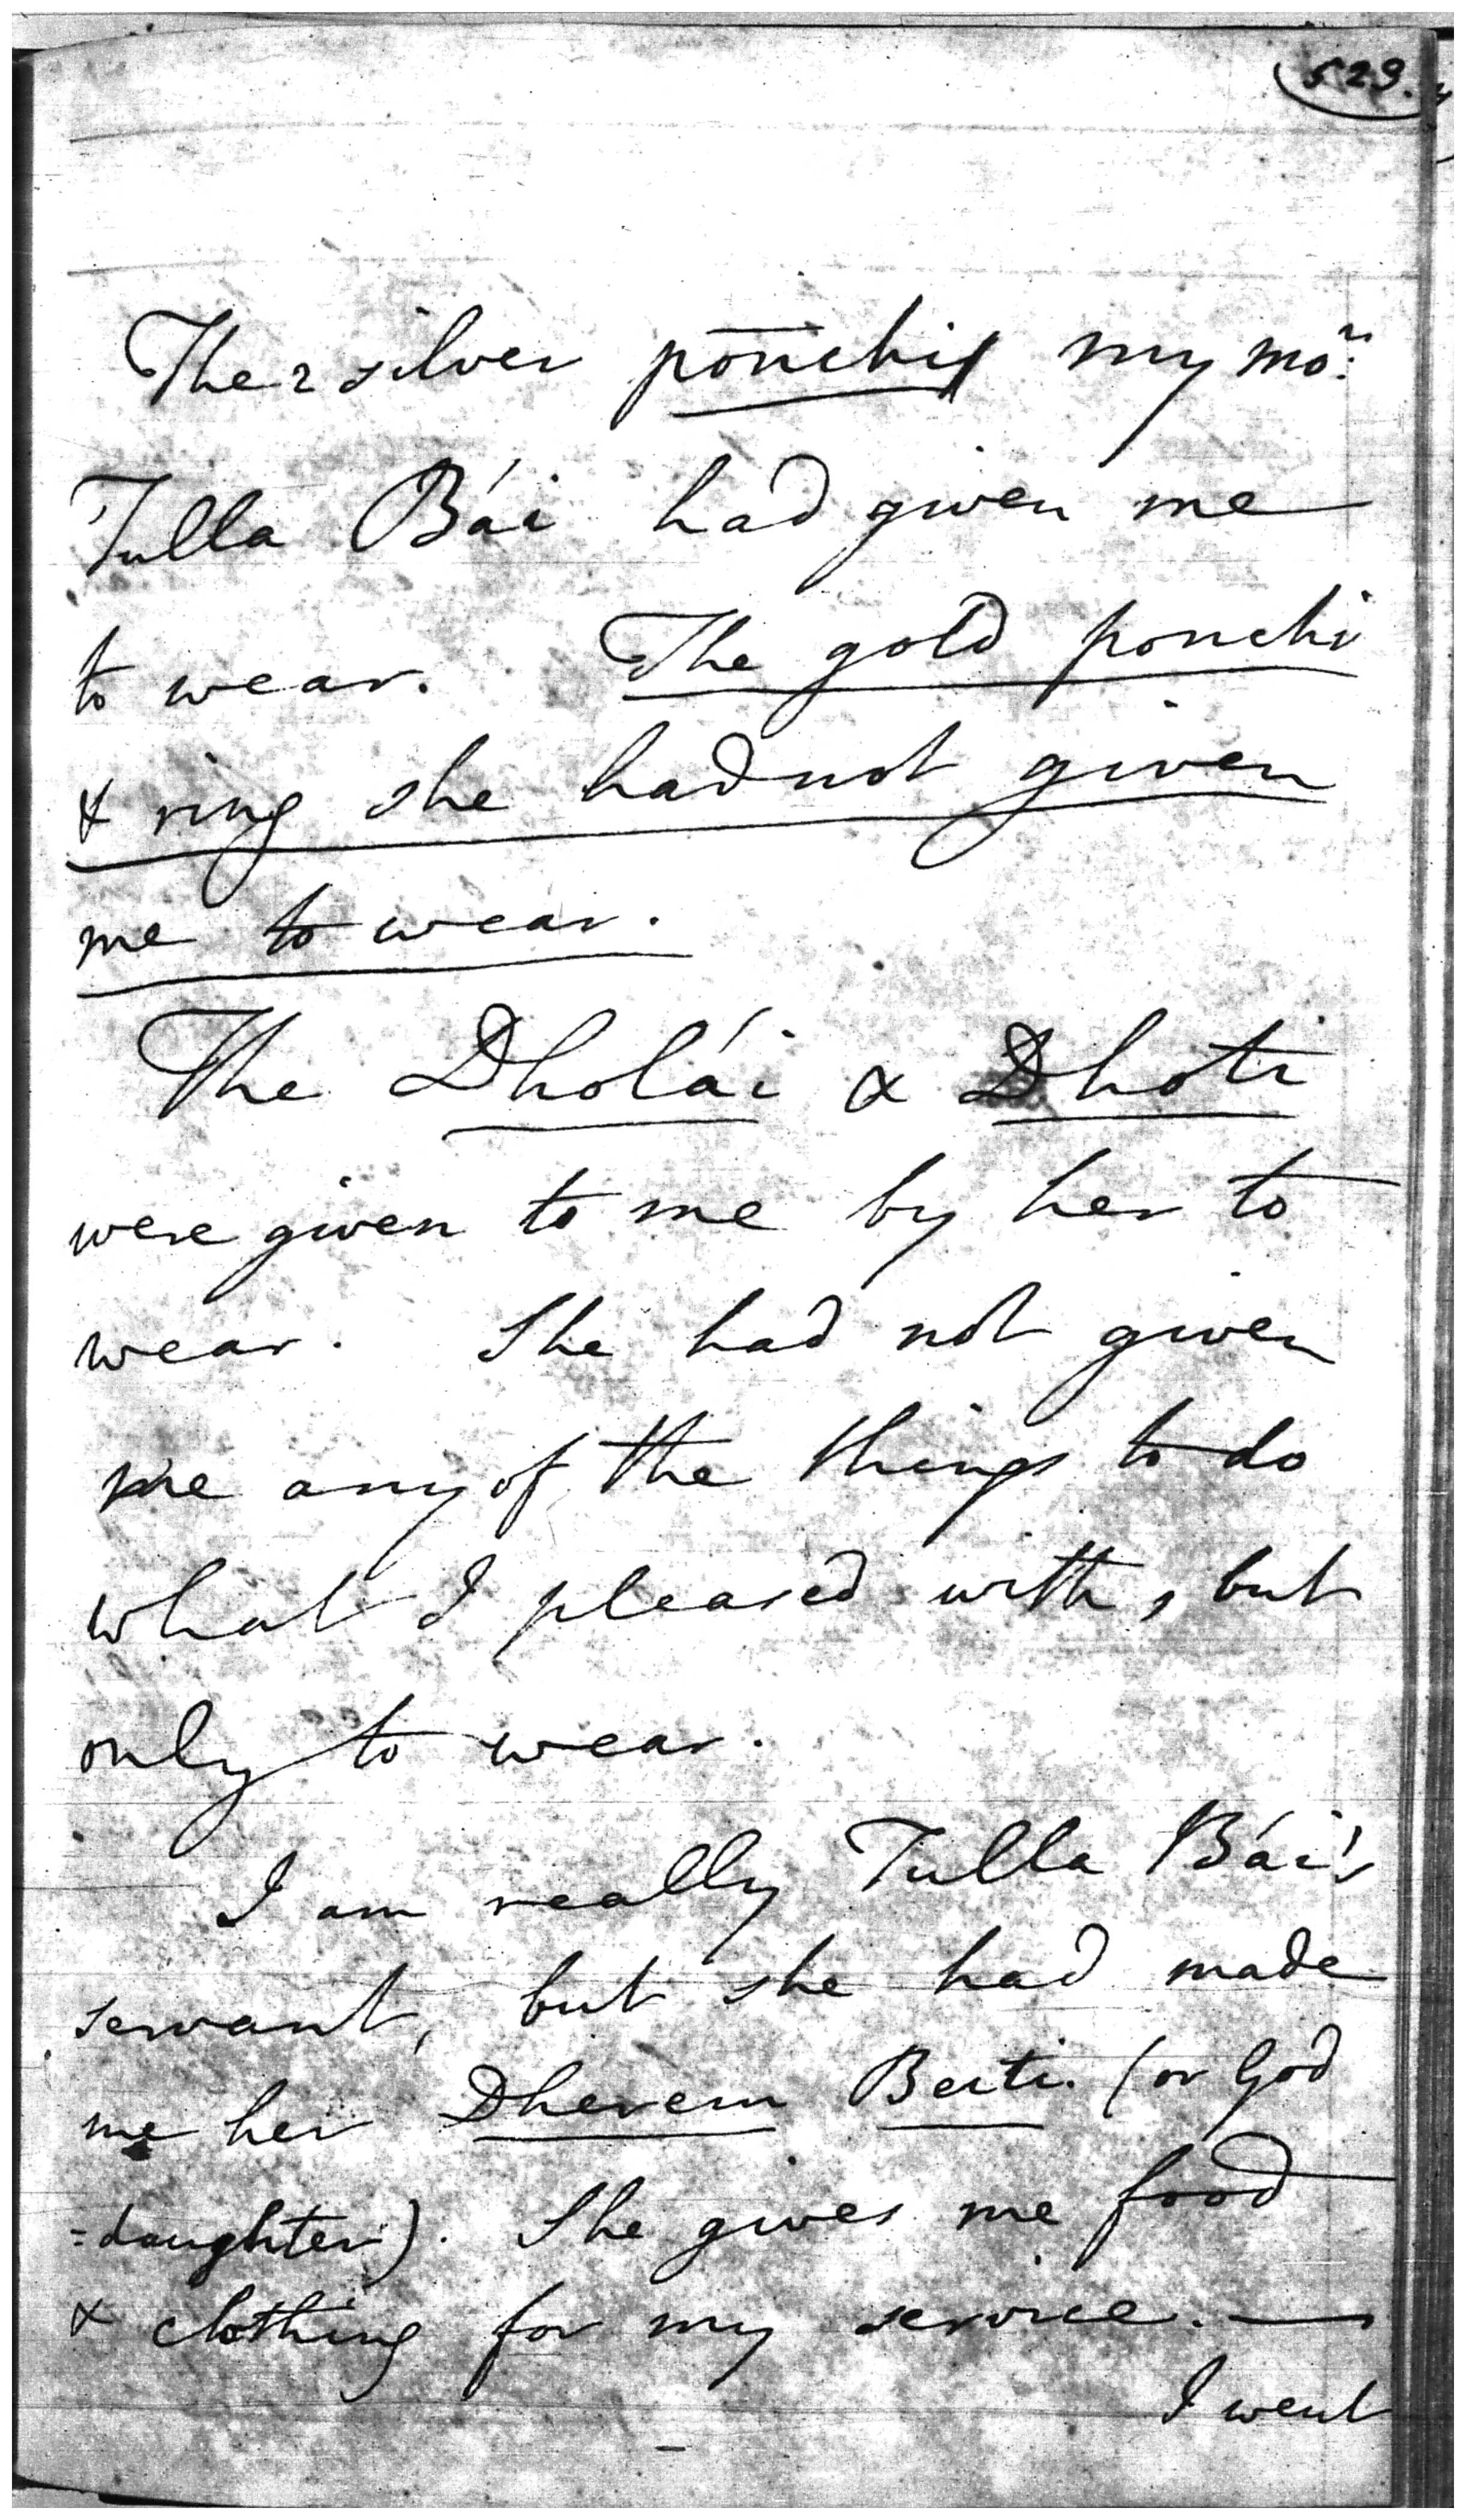 529.
The 2 silver ponchis my mo.r
Tulla Bái had given me
to wear. The gold ponchi
& ring she had not given
me to wear.
The Dholái & Dhoti
were given to me by her to
wear. She had not given
me any of the things to do
what I pleased with, but
only to wear.
I am really Tulla Bái's
servant, but she had made
me her Dherem Beiti (or God
=daughter). She gives me food
& clothing for my service. —
I went